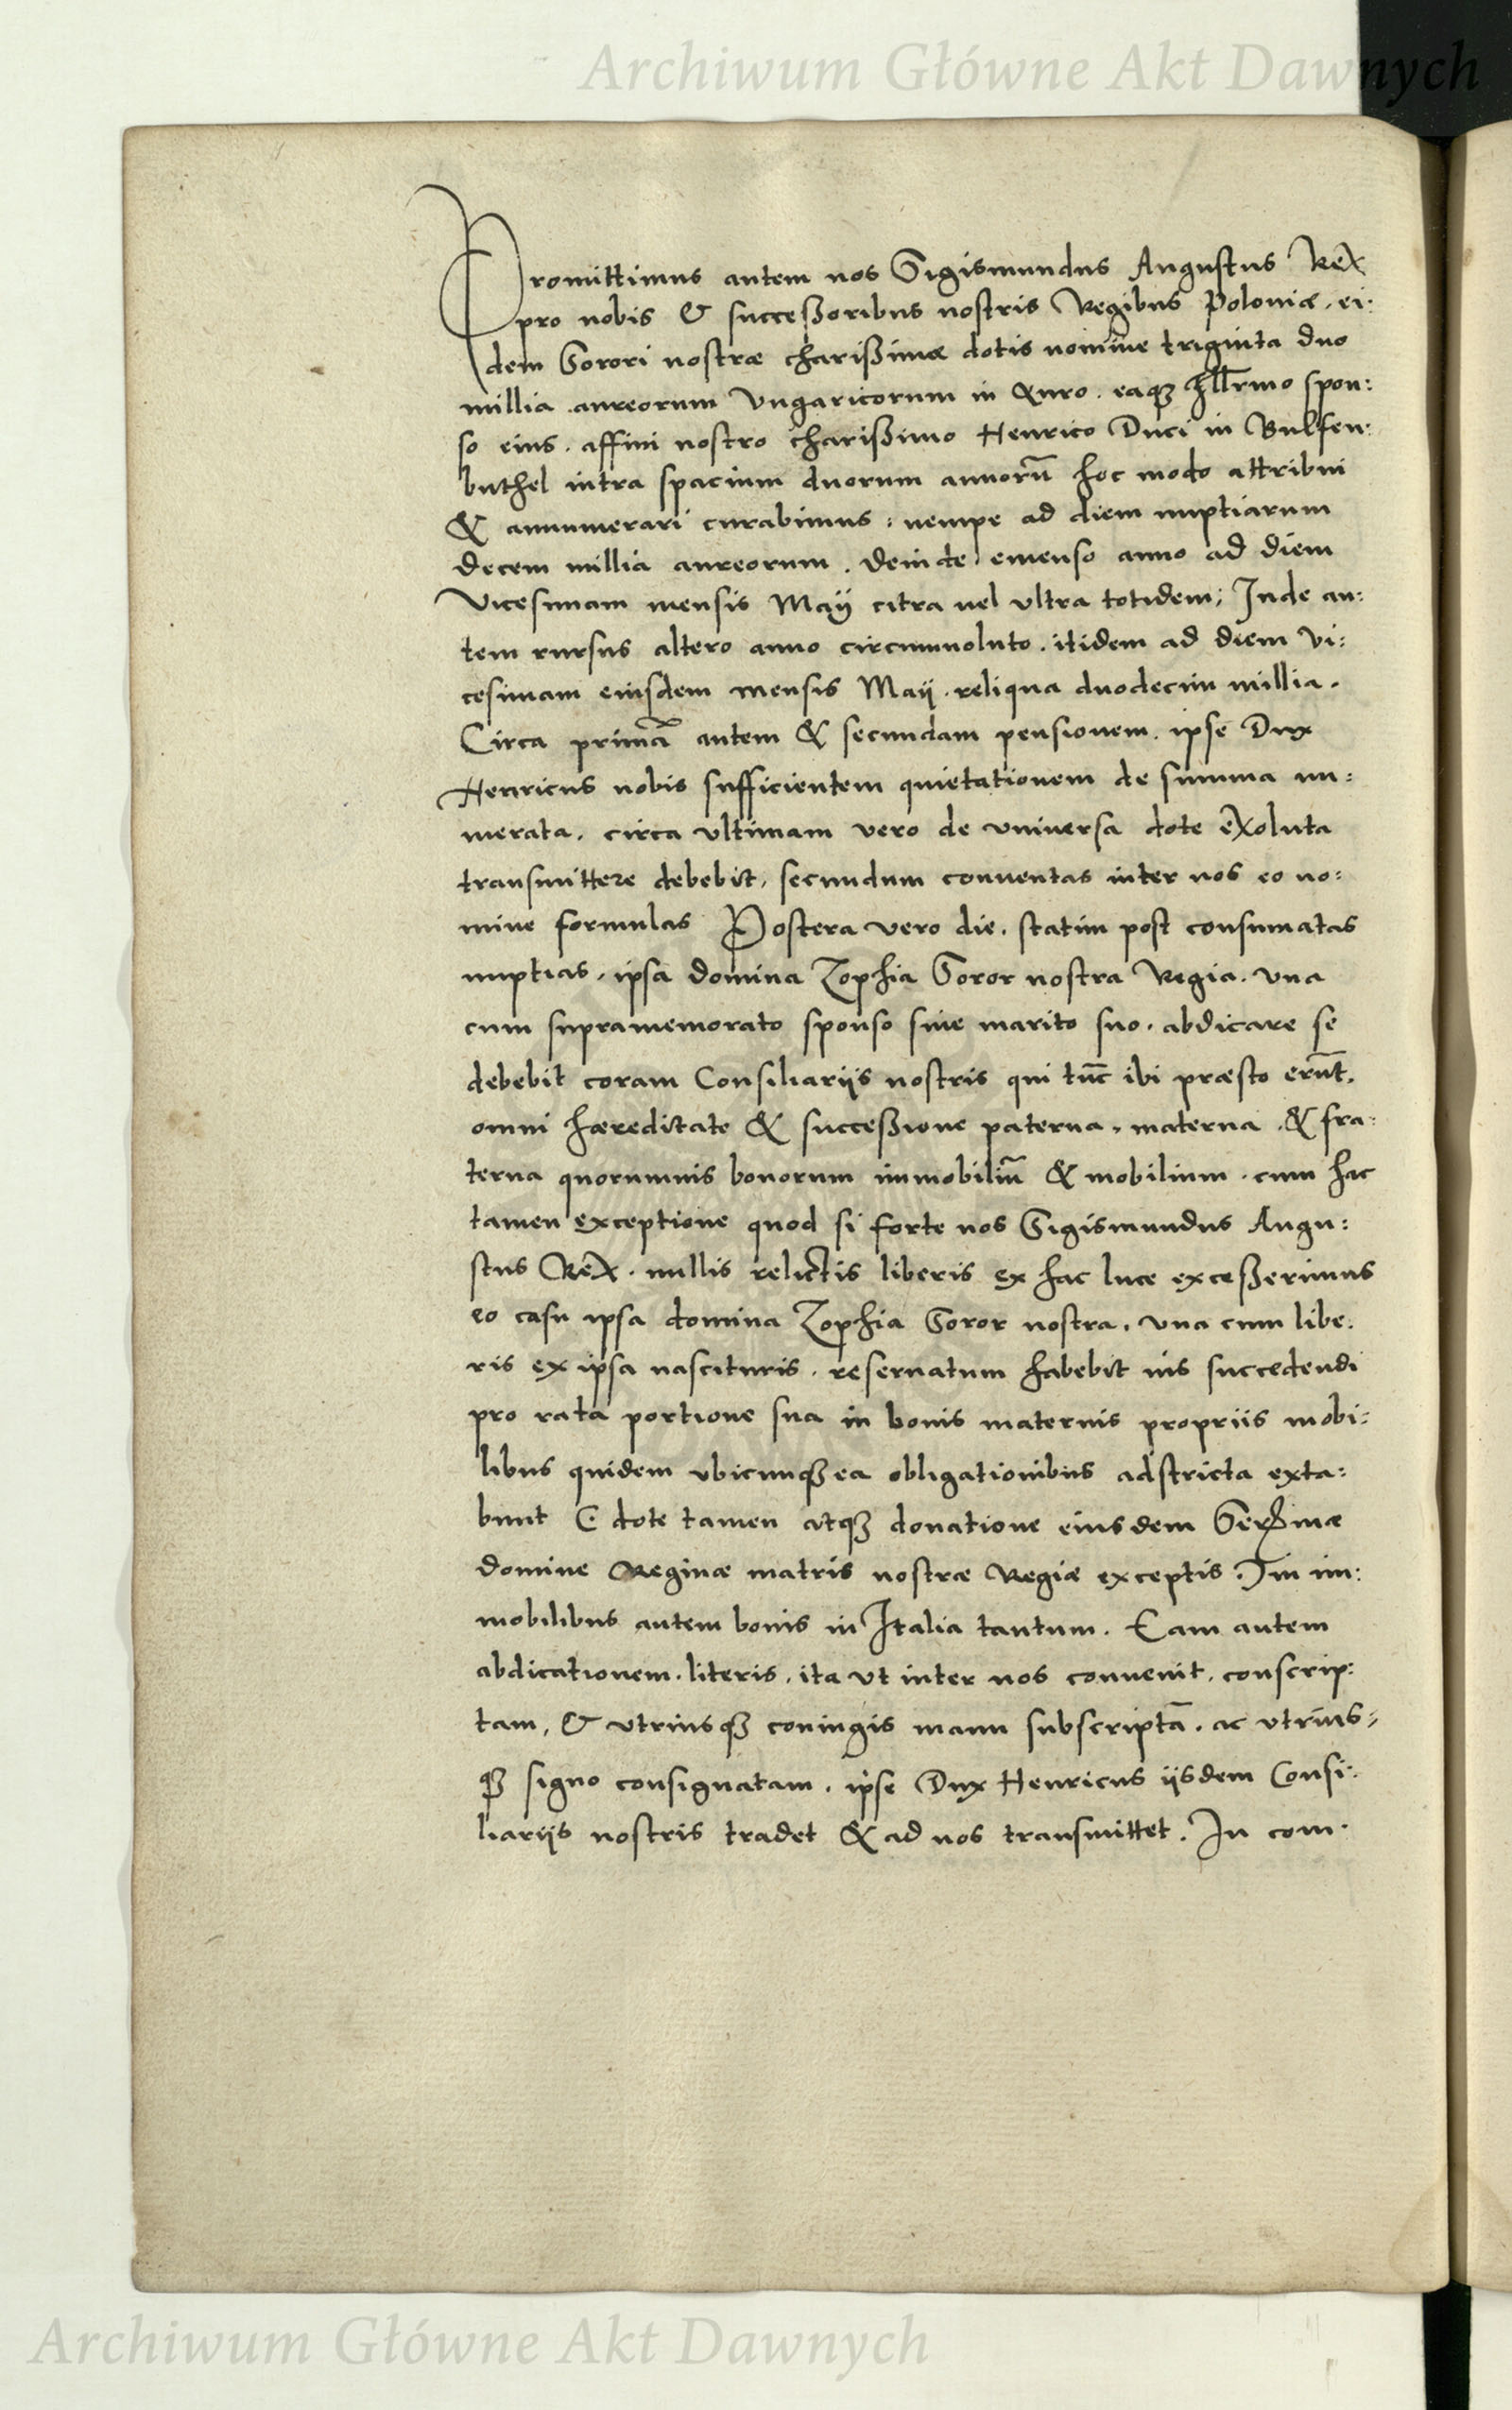 Archiwum Główne Akt Dawnych
Promittimus autem nos Sigismundus Augustus Rex
pro nobis & succeßoribus nostris Regibus Poloniæ, ei:
dem Sorori nostræ charißimæ dotis nomine triginta duo
millia aureorum Vngaricorum in Auro. eaqꝫ Illr̃mo spon:
so eius. affini nostro charißimo Henrico Duci in Bulfen:
buthel intra spacium duorum annorũ hoc modo attribui
& annumerari curabimus: nempe ad diem nuptiarum
decem millia aureorum. deinde emenso anno ad diem
Vicesimam mensis Maij citra uel vltra totidem; Inde au:
tem rursus altero anno circumuoluto. itidem ad diem vi:
cesimam eiusdem mensis Maij. reliqua duodecim millia.
Circa primã autem & secundam pensionem. ipse Dux
Henricus nobis sufficientem quietationem de summa nu:
merata. circa vltimam vero de vniuersa dote exoluta
transmittere debebit, secundum conuentas inter nos eo no:
mine formulas Postera vero die. statim post consumatas
nuptias, ipsa domina Zophia Soror nostra Regia. vna
cum supramemorato sponso siue marito suo. abdicare se
debebit coram Consiliariis nostris qui tũc ibi præsto erũt.
omni hæreditate & succeßione paterna, materna. & fra:
terna quorumuis bonorum immobiliũ & mobilium. cum hac
tamen exceptione quod si forte nos Sigismundus Augu:
stus Rex. nullis relictis liberis ex hac luce exceßerimus
eo casu ipsa domina Zophia Soror nostra. vna cum libe.
ris ex ipsa nascituris. reseruatum habebit ius succedendi
pro rata portione sua in bonis maternis propriis mobi:
libus quidem vbicunqꝫ ea obligationibus adstricta exta:
bunt E dote tamen atqꝫ donatione eiusdem Ser̃mæ
domine Reginæ matris nostræ Regiæ exceptis. In im:
mobilibus autem bonis in Italia tantum. Eam autem
abdicationem. literis. ita vt inter nos conuenit. conscrip:
tam, & vtriusqꝫ coniugis manu subscriptã. ac vtrius:
qꝫ signo consignatam. ipse Dux Henricus iisdem Consi:
liariis nostris tradet & ad nos transmittet. In com.
Archiwum Główne Akt Dawnych